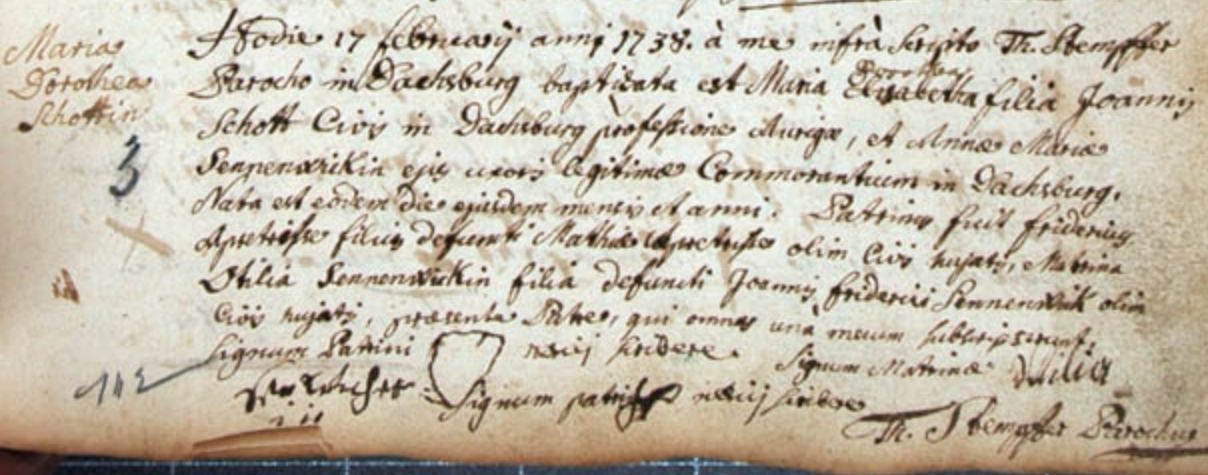 Maria
Dorothea
Schottin
3
Hodie 17 februarij anni 1738. à me infrà scripto Th. Stempffer
Parocho in Dachsburg baptizata est Maria Elisabetha Dorothea filia Joannis
Schott Civis in Dachsburg professione Aurigæ, et Annæ Mariæ
Sennenwikin ejus uxoris legitimæ Commorantium in Dachsburg.
Nata est eodem die ejusdem mensis et anni. Patrinus fuit fridericus
filius defuncti Mathiæ olim Civis hujatis, Matrina
Otilia Sennenwikin filia defuncti Joannis friderici Sennenwik olim
Civis hujatis, præsente Patre, qui omnes unà mecum subscripserunt,
Signum Patrini nescij scribere. Signum Matrinæ
Signum patris nescij scribere
Th. Stempffer Parochus